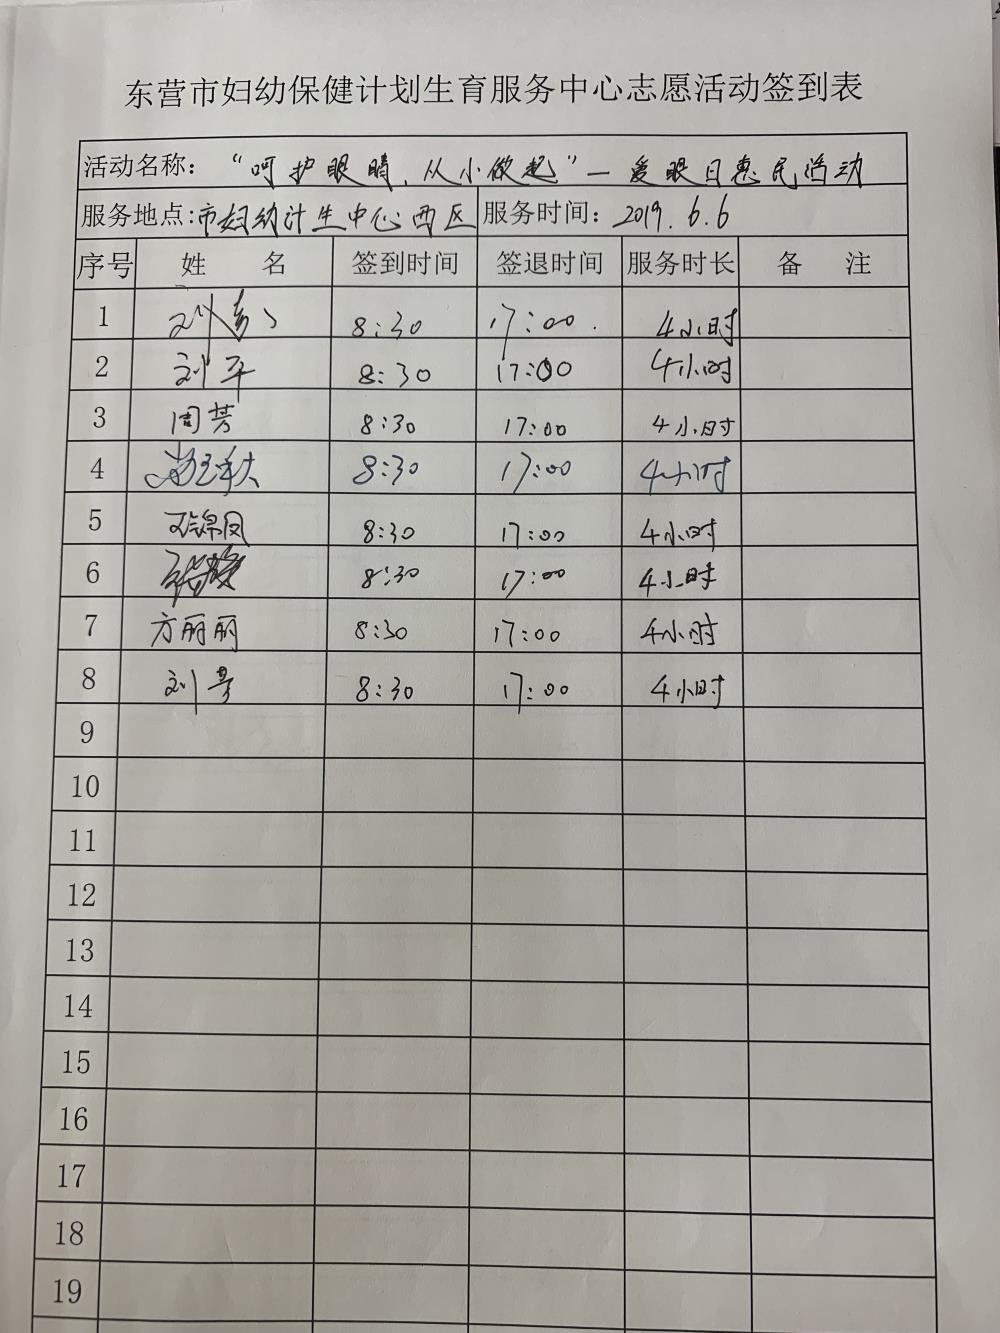 东营市妇幼保健计划生育服务中心志愿活动签到表
活动名称：“呵护眼睛、从小做起”—爱眼日惠民活动
服务地点:市妇幼计生中心西区 服务时间：2019.6.6
序号 姓 名 签到时间 签退时间 服务时长 备 注
1 刘 8:30 17:00. 4小时
2 刘平 8:30 17:00 4小时
3 周芳 8:30 17:00 4小时
4 8:30 17:00 4小时
5 锦凤 8:30 17:00 4小时
6 张 8:30 17:00 4小时
7 方丽丽 8:30 17:00 4小时
8 刘 8:30 17:00 4小时
9
10
11
12
13
14
15
16
17
18
19